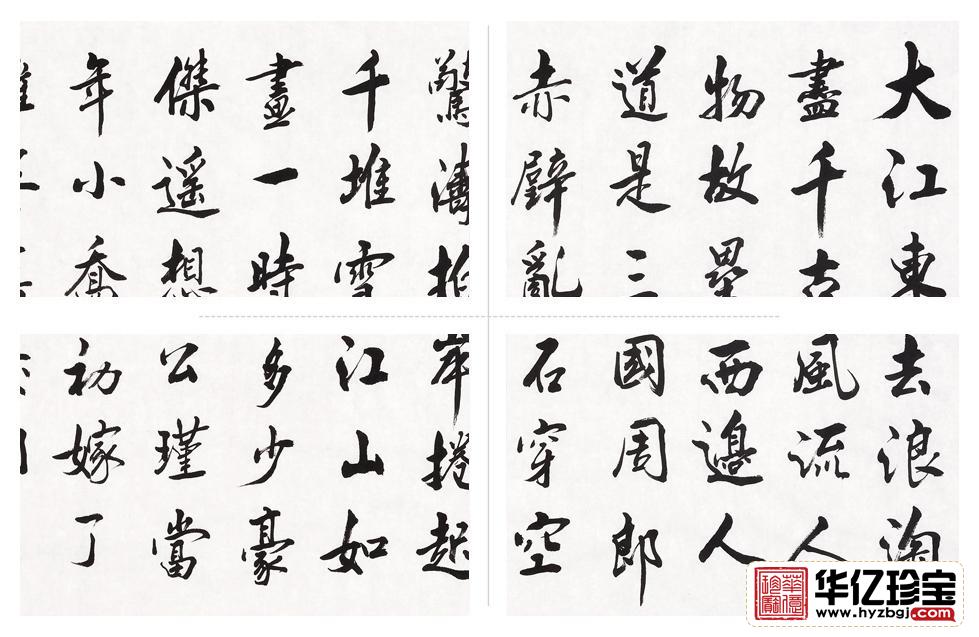 大江東去浪淘
盡千古風流人
物故壘西邊人
道是三國周郎
赤壁亂石穿空
驚濤拍岸捲起
千堆雪江山如
盡一時多少豪
傑遥想公瑾當
年小喬初嫁了
珍寶華億
华亿珍宝
www.hyzbgj.com